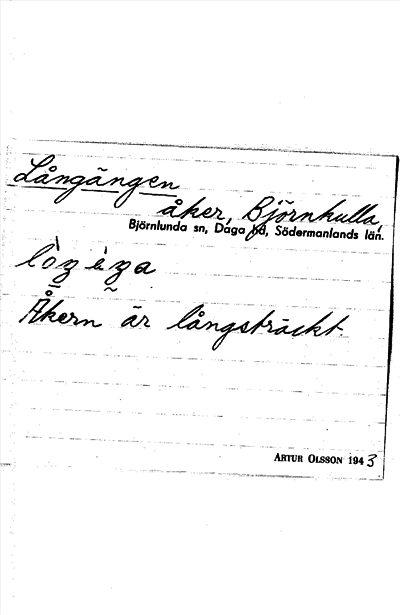 Långängen
åker, Björnhulla,
Björnlunda sn, Daga hd, Södermanlands län.
Åkern är långsträckt.
ARTUR OLSSON 1943